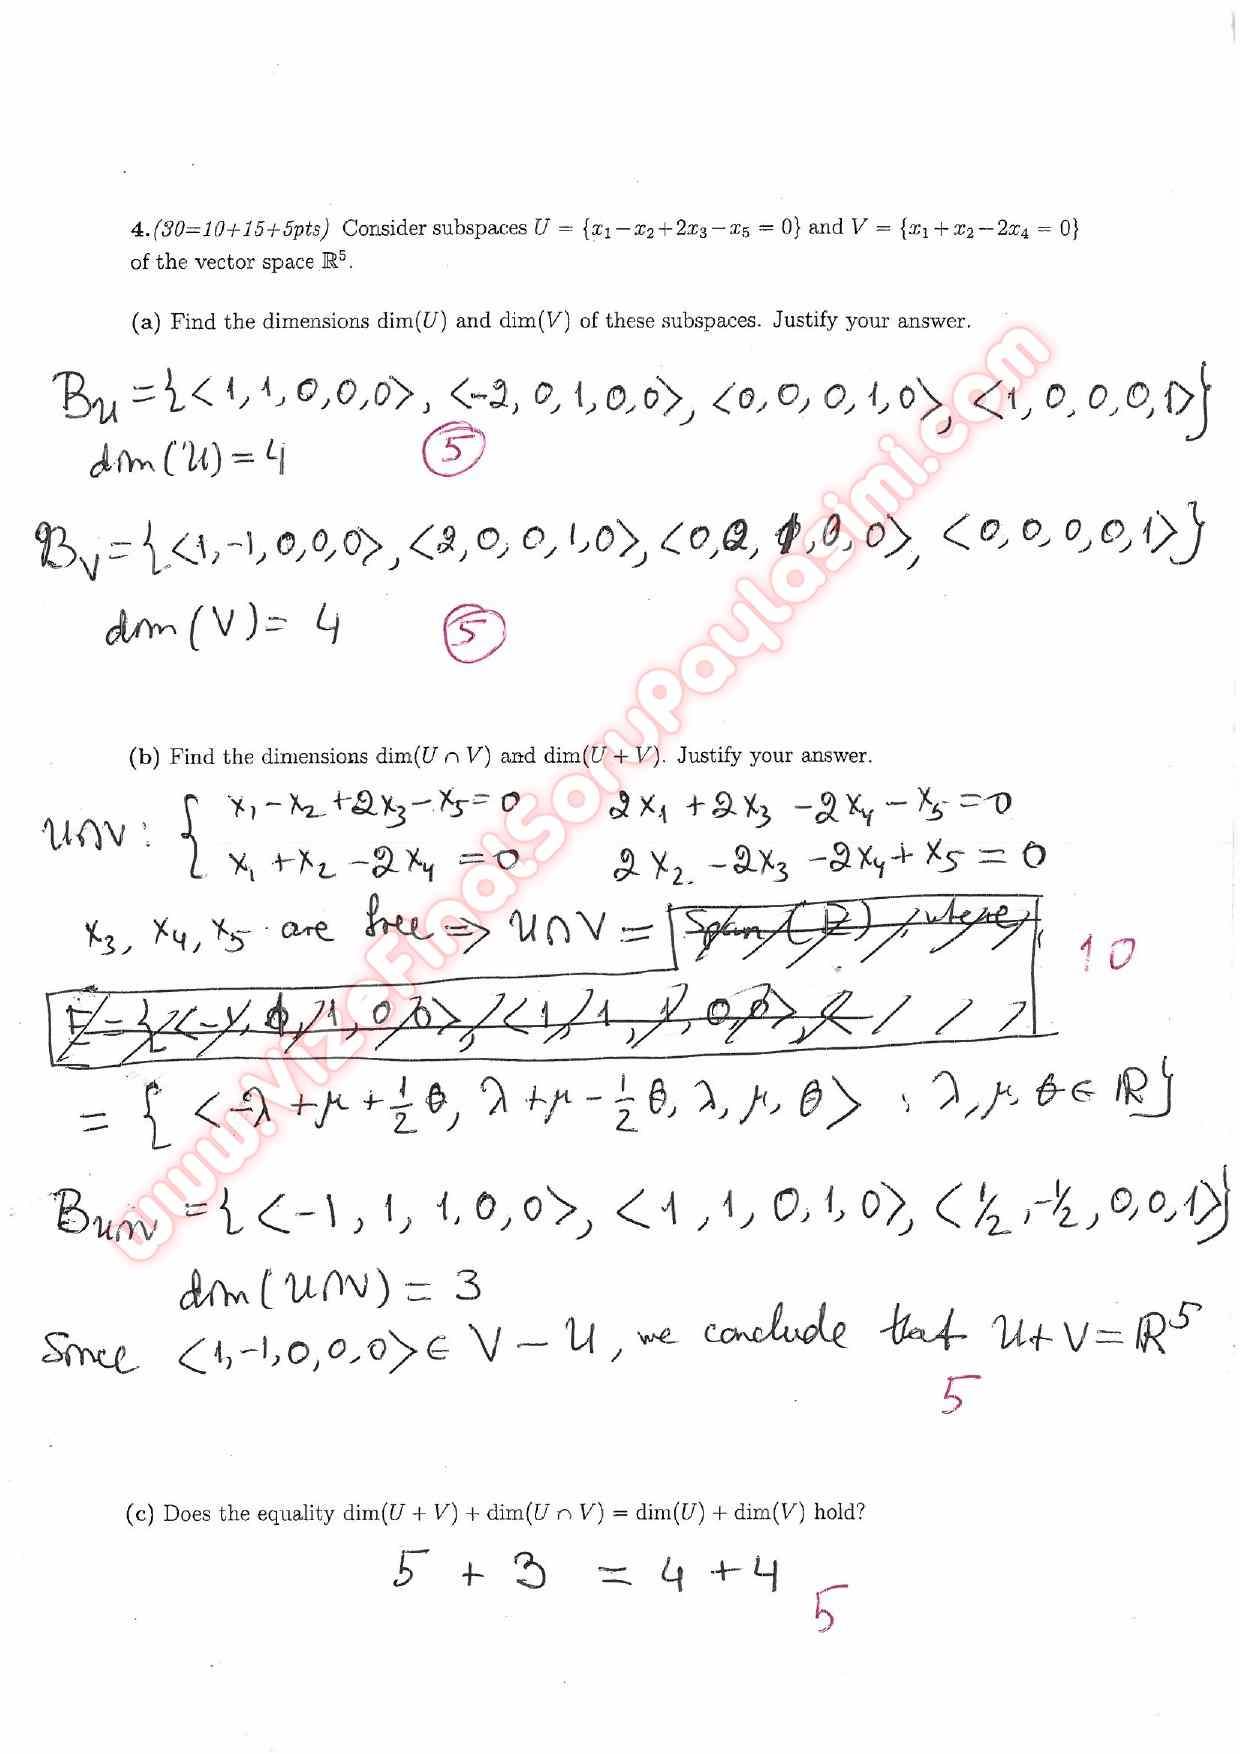 4.(30=10+15+5pts) Consider subspaces U = {x₁−x₂+2x₃−x₅ = 0} and V = {x₁+x₂−2x₄ = 0}
of the vector space ℝ⁵.
(a) Find the dimensions dim(U) and dim(V) of these subspaces. Justify your answer.
B_U = {<1, 1, 0, 0, 0>, <-2, 0, 1, 0, 0>, <0, 0, 0, 1, 0>, <1, 0, 0, 0, 1>}
dim(U) = 4 5
B_V = {<1, -1, 0, 0, 0>, <2, 0, 0, 1, 0>, <0, 0, 1, 0, 0>, <0, 0, 0, 0, 1>}
dim(V) = 4 5
(b) Find the dimensions dim(U ∩ V) and dim(U + V). Justify your answer.
U∩V : { x₁ - x₂ + 2x₃ - x₅ = 0 2x₁ + 2x₃ - 2x₄ - x₅ = 0
x₁ + x₂ - 2x₄ = 0 2x₂ - 2x₃ - 2x₄ + x₅ = 0
x₃, x₄, x₅ are free => U∩V = Span ( ), where
10
= { <-λ + μ + ½θ, λ + μ - ½θ, λ, μ, θ> : λ, μ, θ ∈ ℝ}
B_U∩V = {<-1, 1, 1, 0, 0>, <1, 1, 0, 1, 0>, <½, -½, 0, 0, 1>}
dim(U∩V) = 3
Since <1, -1, 0, 0, 0> ∈ V - U, we conclude that U+V = ℝ⁵
5
(c) Does the equality dim(U + V) + dim(U ∩ V) = dim(U) + dim(V) hold?
5 + 3 = 4 + 4
5
www.VizeFinalSoruPaylasimi.com